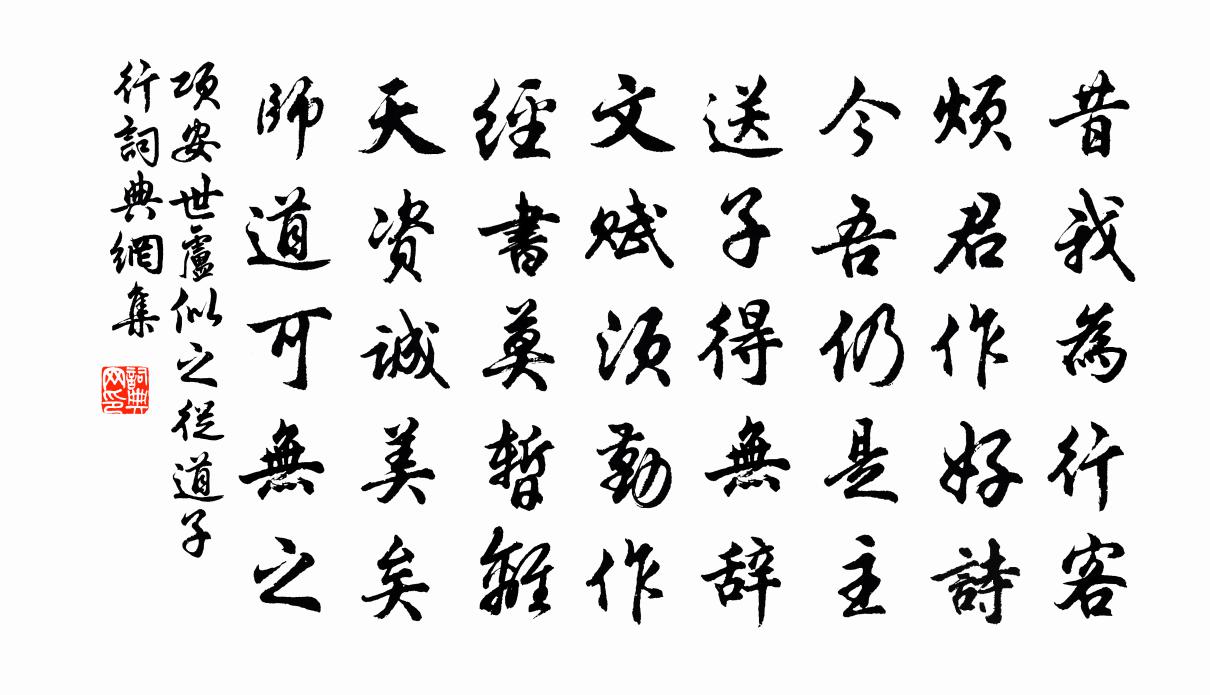 昔我為行客
煩君作好詩
今吾仍是主
送子得無辞
文赋須勤作
經書莫暫離
天资誠美矣
師道可無之
項安世盧似之從道子
行詞典網集
詞典网印